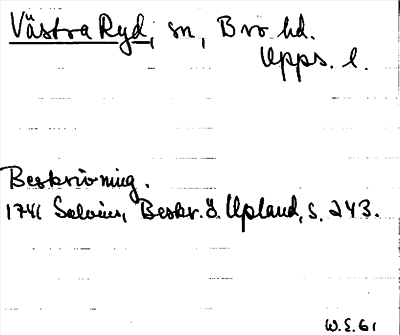 Västra Ryd, sn, Bro hd.
Upps. l.
Beskrivning.
1741 Salvius, Beskr. ö. Upland, s. 243.
W.E. 61